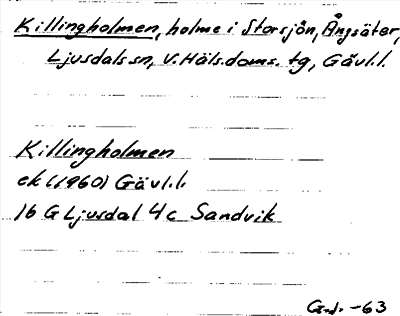 Killingholmen, holme i Storsjön, Ångsäter,
Ljusdals sn, V. Häls. doms. tg, Gävl. l.
Killingholmen
ek (1960) Gävl. l.
16 G Ljusdal 4c Sandvik
G.J. -63